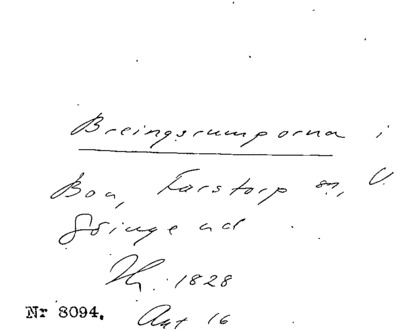 Breingsrumporna i
Boa, Farstorp sn, V.
Göinge hd
1828
Nr 8094. Ant 16